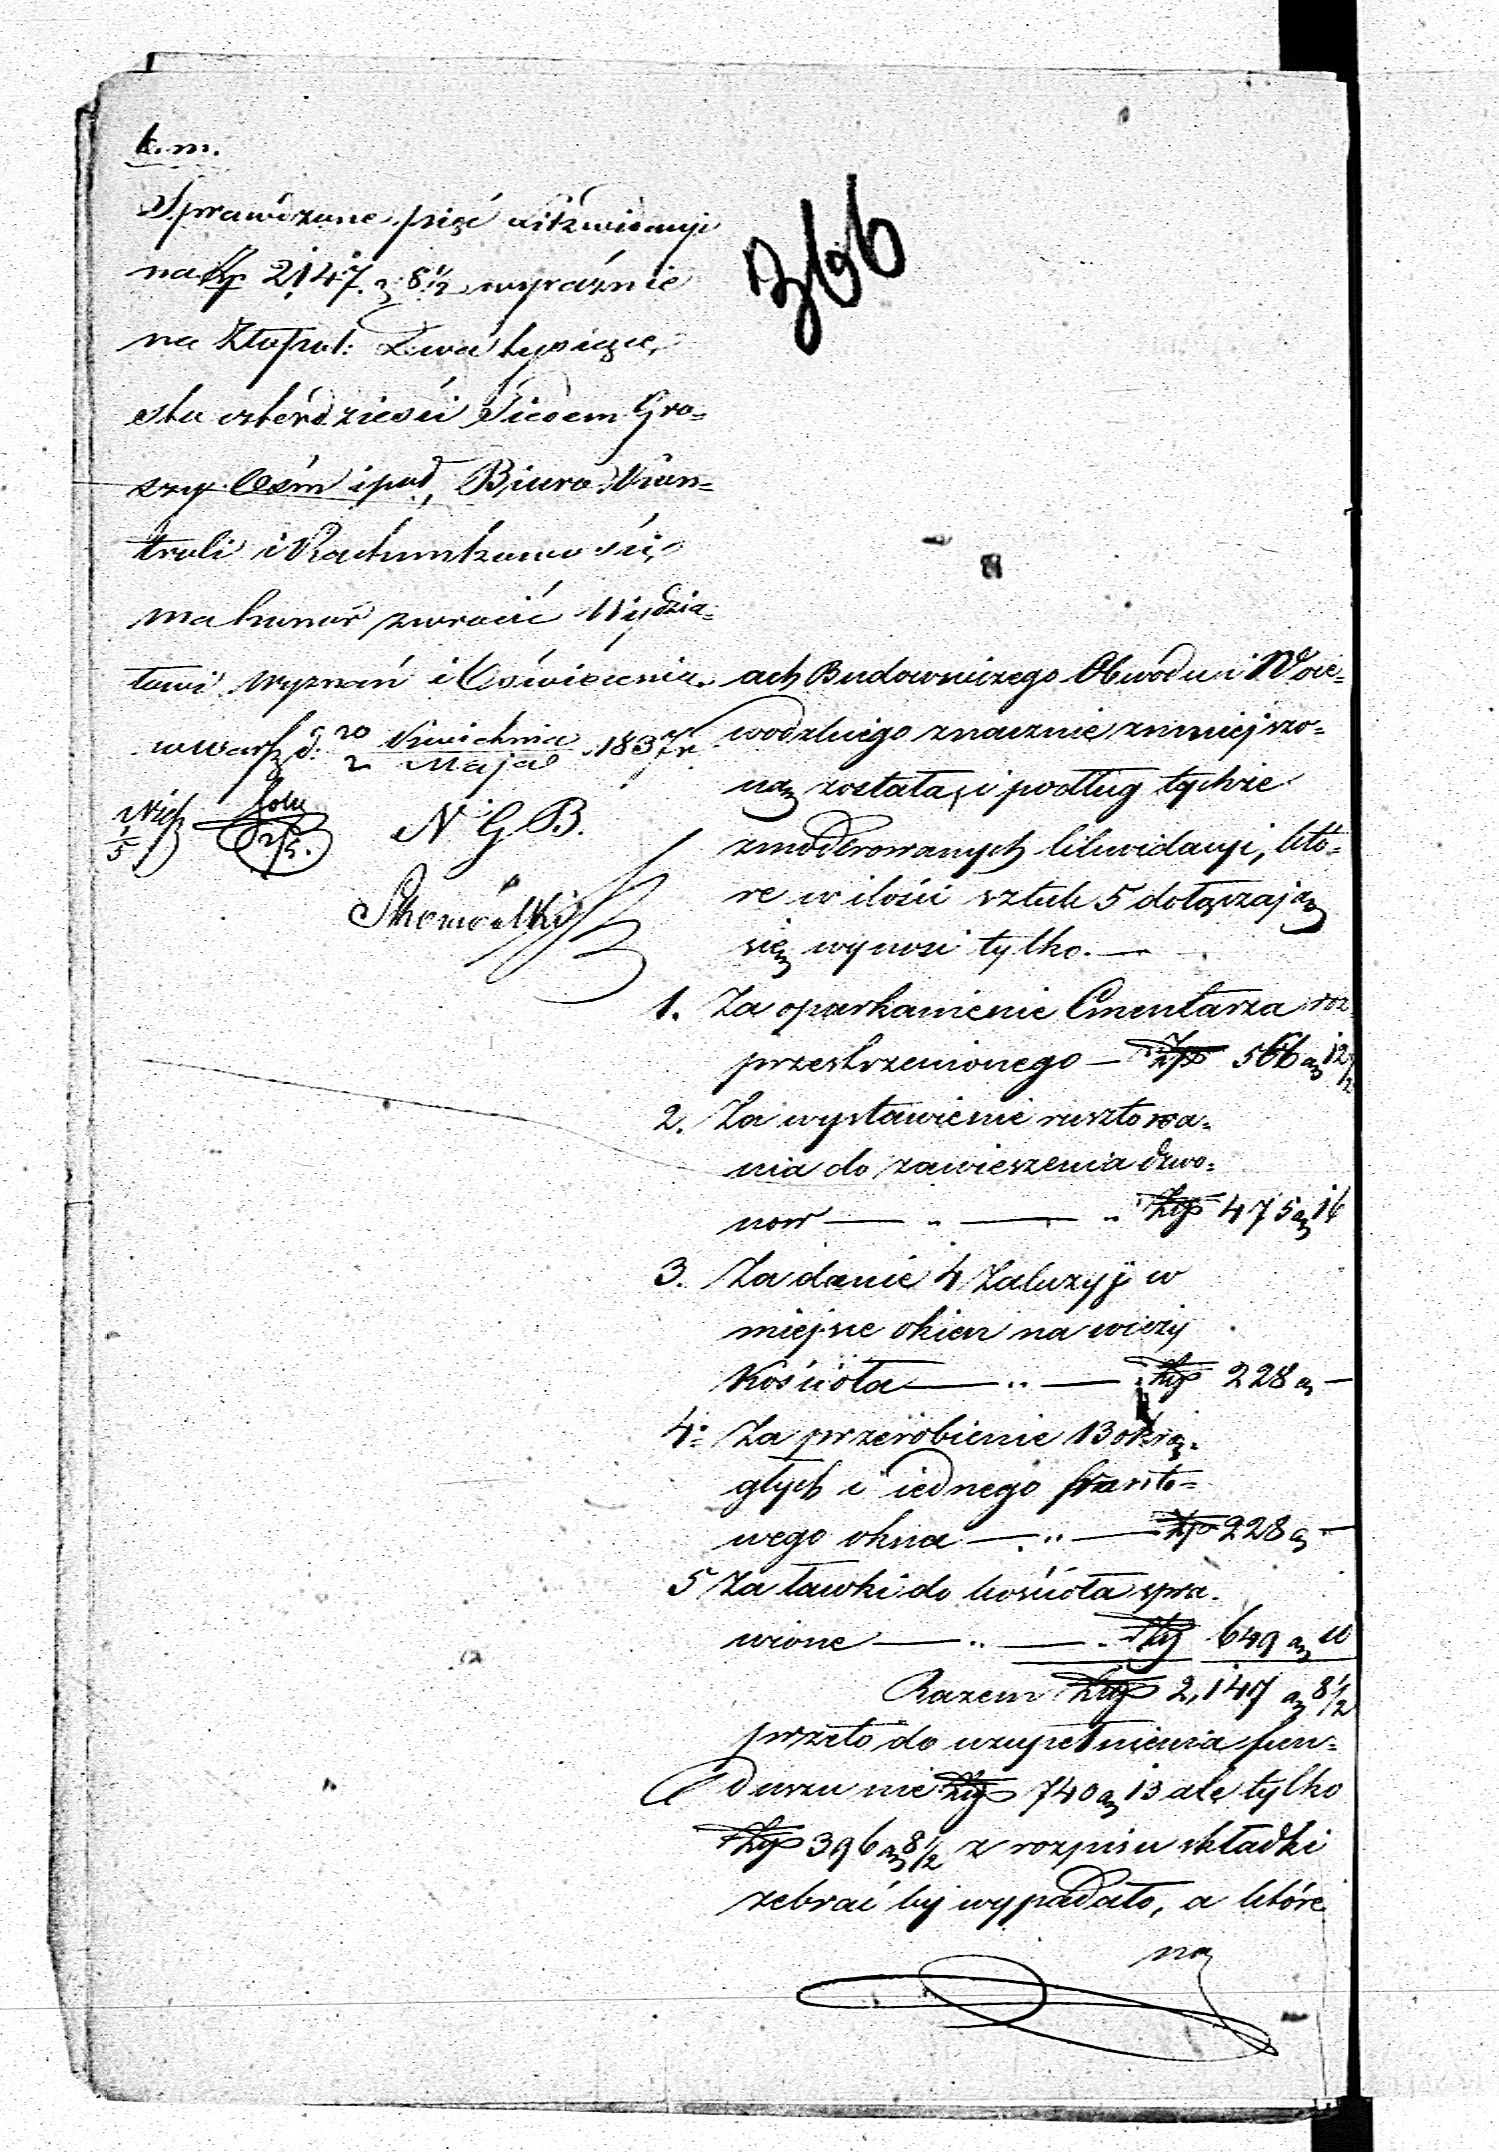 k. m.
Sprawdzone pięć likwidacyi
na Złp 2147 g 8 1/2 wyraźnie
na Złotpol: Dwa tysiące
sto czterdzieści siedem Gro=
szy Ośm i pół, Biuro Kon=
troli i Rachunkowości
ma honor zwrócić Wydzia=
łowi Wyznań i Oświecenia.
w Warsz d. 20 Kwietnia / 2 Maja 1837 r.
N G B.
366
ach Budowniczego Obwodu i Woie=
wodzkiego znacznie zmniejszo=
ną została, i podług tychże
zmoderowanych likwidacyi, któ=
re w ilości sztuk 5 dołączają
się wynosi tylko. —
1. Za oparkanienie Cmentarza roz
przestrzenionego — Złp 566 g 12 1/2
2. Za wystawienie rusztowa=
nia do zawieszenia dzwo=
now — „ — „ Złp 475 g 16
3. Za danie 4 Zaluzyj w
miejsce okien na wieży
Kościoła — „ — Złp 228 g —
4. Za przerobienie 13 okrą=
głych i iednego frantо=
wego okna — „ — Złp 228 g —
5 Za ławki do kościoła spra=
wione — „ — Złp 649 g 10
Razem Złp 2,147 g 8 1/2
przeto do uzupełnienia fun=
duszu nie Złp 740 g 13 ale tylko
Złp 396 g 8 1/2 z rozpisu składki
zebrać by wypadało, a któré
na